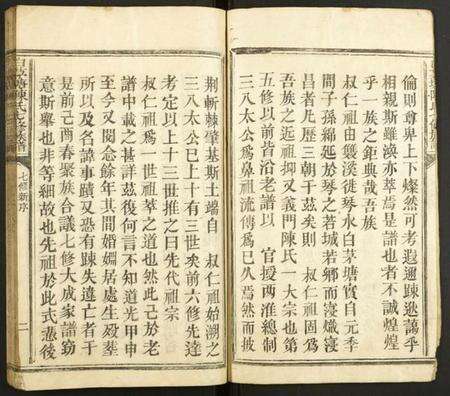 倫則尊卑上下燦然可考遐邇踈遠藹乎
相親斯雖渙亦萃焉是譜也者不誠煌煌
乎一族之鉅典哉吾族
叔仁祖由襲溪徙琴水白茅塘實自元季
間子孫綿延於琴之若城若鄉而寖熾寖
昌者凡歷三朝于茲矣則 叔仁祖固爲
吾族之近祖抑又義門陳氏一大宗也第
五修以前皆沿老譜以 官援兩淮總制
三八太公爲鼻祖流傳爲已久焉然而披
荆斬棘肇基斯土端自 叔仁祖始溯之
三八太公已上十有三世矣前六修先達
考定以上十三世推之曰先代祖宗
叔仁祖爲一世祖萃之道也然此己於老
譜中載之甚詳茲復何言不知道光甲申
至今又閱念餘年其間婚嫻居處生殁塟
所以及名諱事蹟又恐有踈失違亡者于
是前己酉春聚族合議七修大成家譜竊
意斯舉也非等細故也先祖於此式憑後
七修新序
二